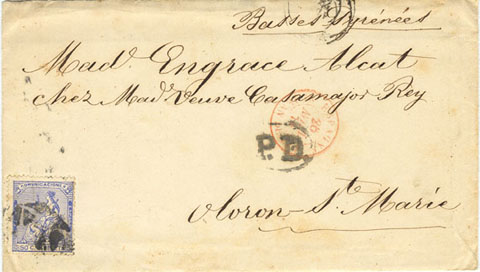 Basses Pyrénées
Mad. Engrace Alcat
chez Mad. Veuve Casamajor Rey
P.D.
COMUNICACIONES
Oloron-Ste Marie